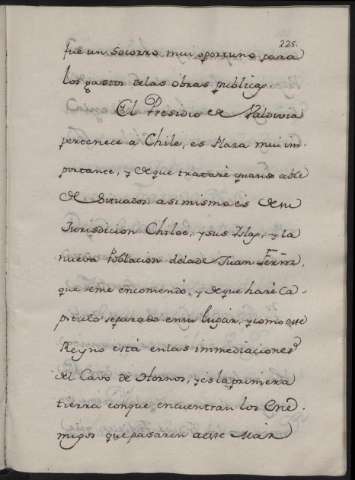 225.
fue un Socorro mui oportuno para
los gastos delas obras publicas.
El Presidio de Valdivia
pertenece à Chile, es Plaza mui im
portante, y de que trataré quando able
de Situados: asimismo es de su
Jurisdicion Chiloe, y sus Islas, y la
nueva Poblacion dela de Juan Fernz.
que seme encomendó, y de que haré Ca
pitulo separado en su lugar, y como este
Reyno está enlas immediaciones
del Cavo de Hornos, y es la primera
tierra conque encuentran los Ene
migos que pasaren aeste Mar